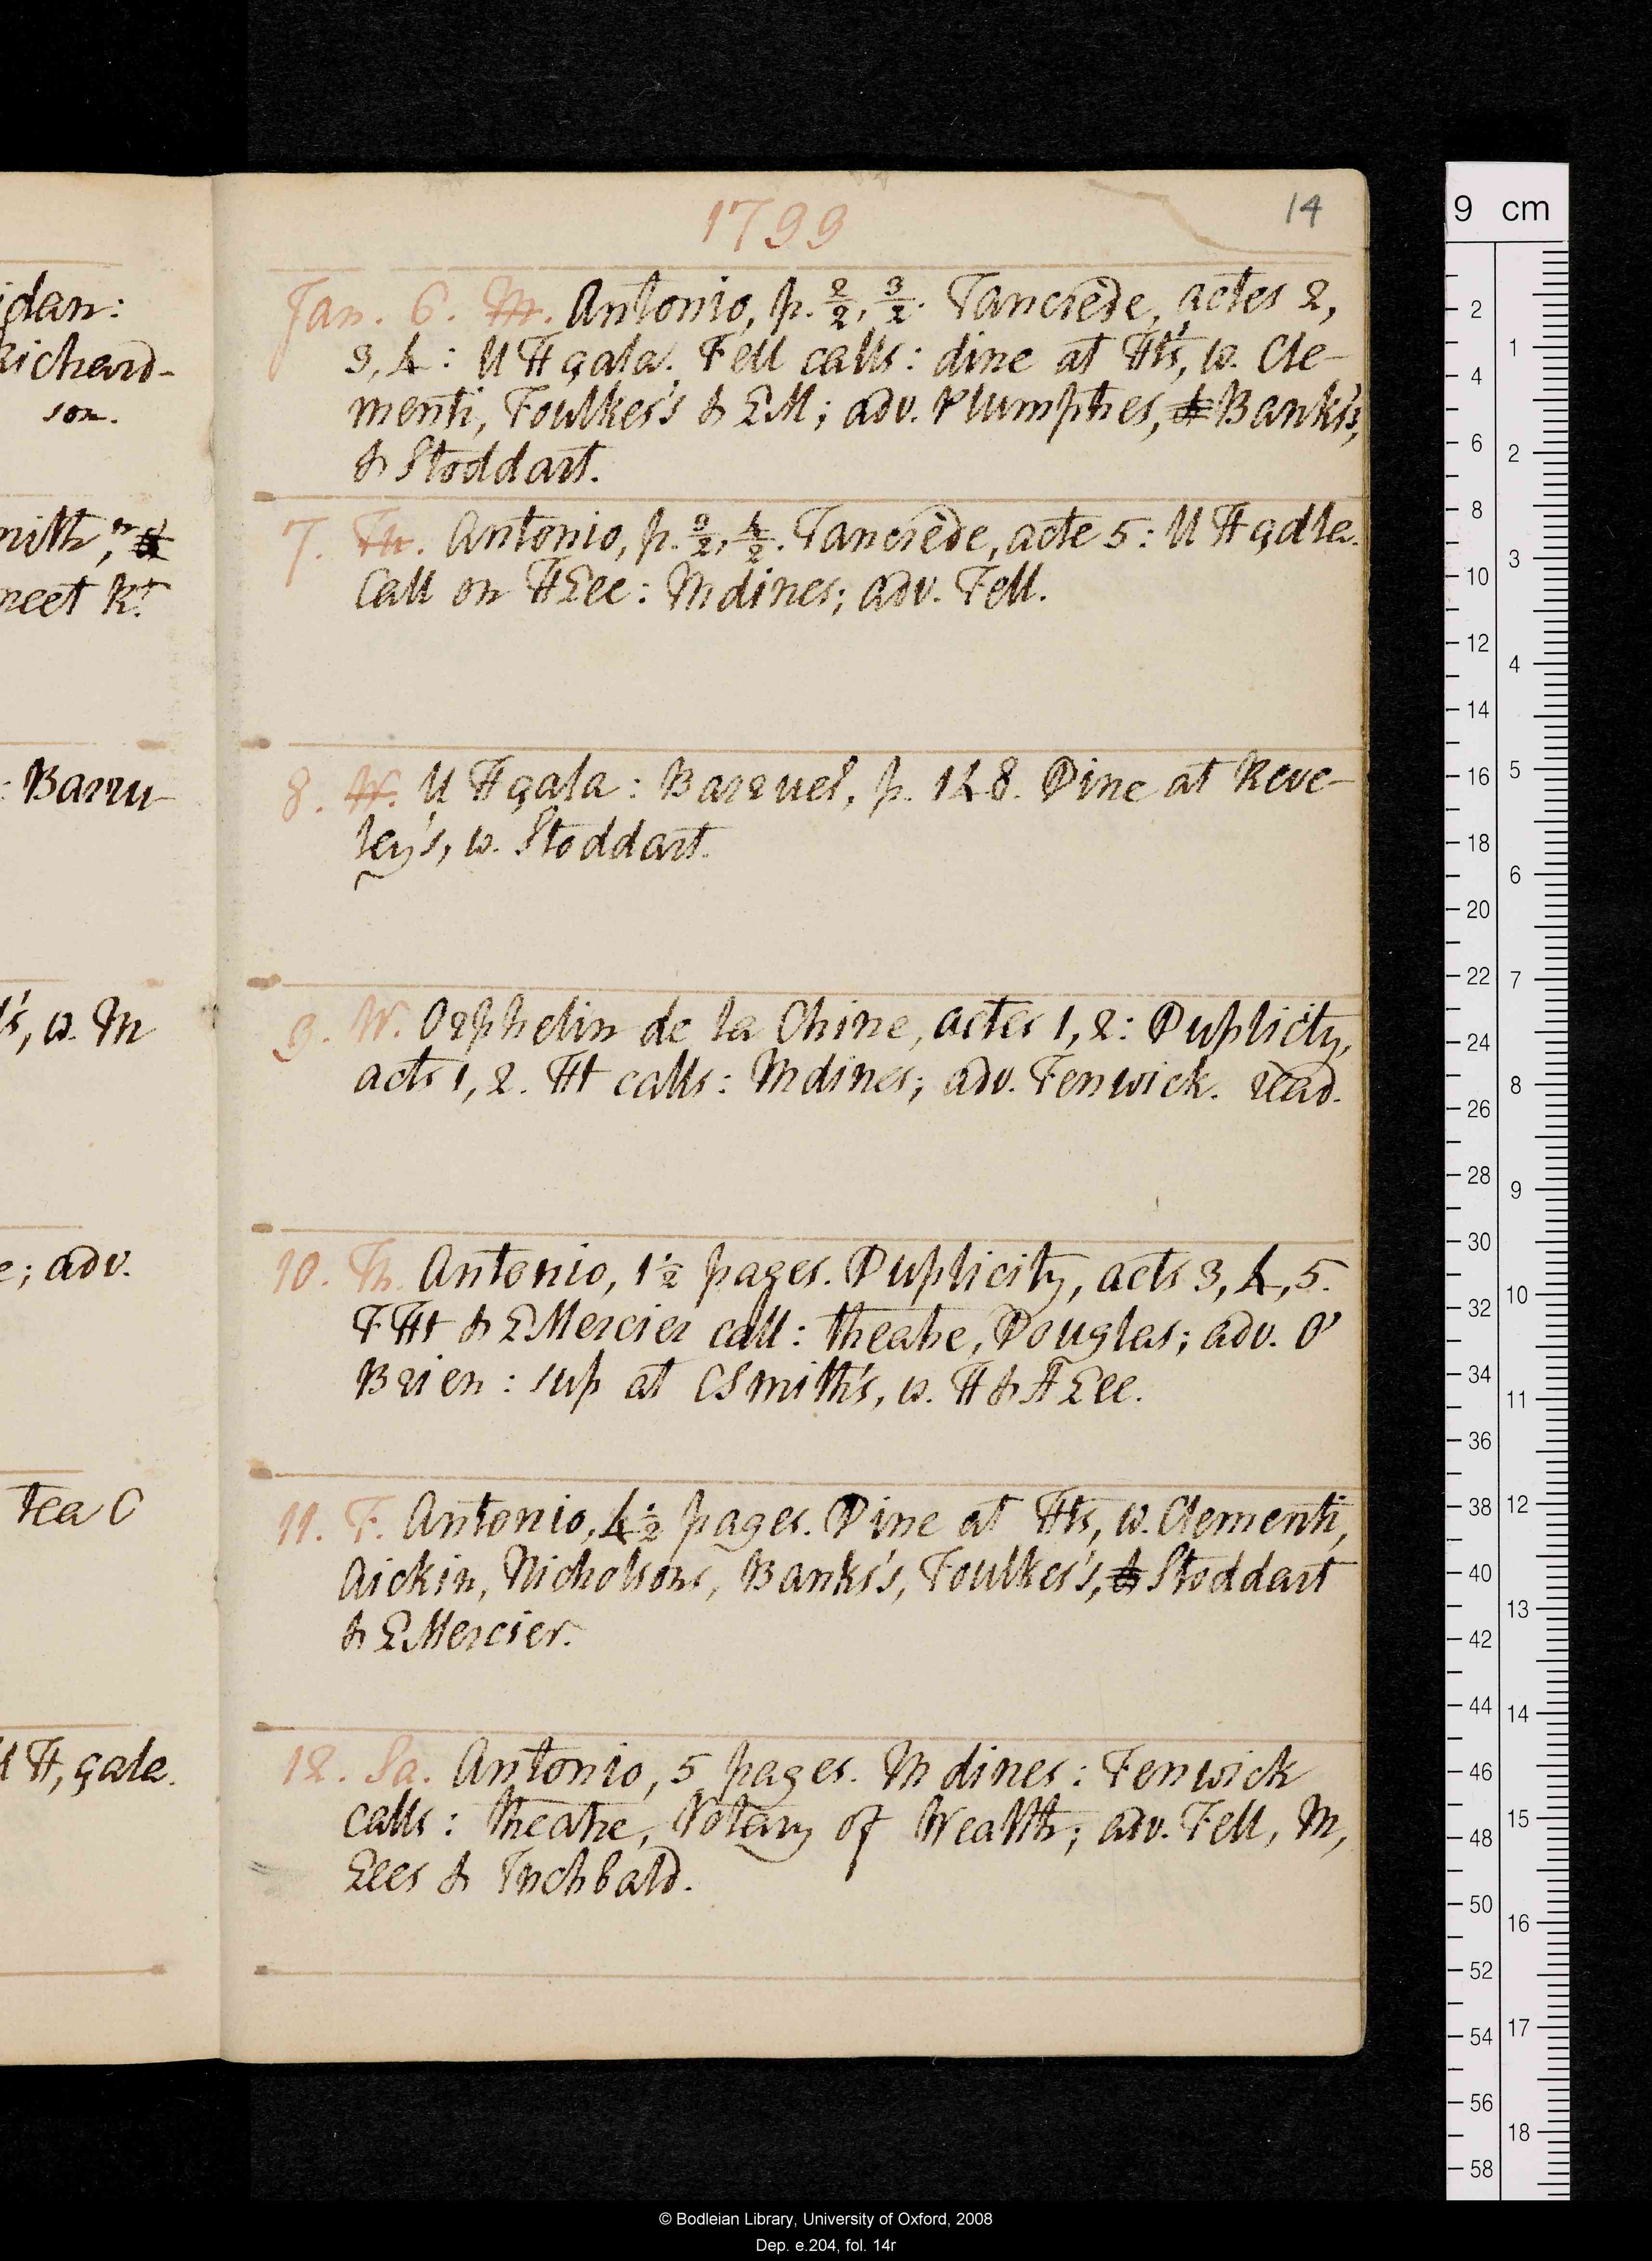 idan:
Richard-
son.
mith,
meet Kt
: Barru-
's, w. M
e; adv.
tea C
U H, gala.
1799
14
Jan. 6. Antonio, p. 2/2, 3/2. Tancrède, actes 2,
3, 4: U H gala. Fell calls: dine at Ht's, w. Cle-
menti, Foulkes's & EM; adv. Plumptres, & Banks's,
& Stoddart.
7. Antonio, p. 3/2, 4/2. Tancrède, acte 5: U H gala.
Call on HLee: M dines; adv. Fell.
8. U H gala: Barruel, p. 148. Dine at Reve-
ley's, w. Stoddart.
9. W. Orphelin de la Chine, actes 1, 2: Duplicity,
acts 1, 2. Ht calls: M dines; adv. Fenwick.
10. Th. Antonio, 1½ pages. Duplicity, acts 3, 4, 5.
F Ht & LMercier call: theatre, Douglas; adv. O'
Brien: sup at CSmith's, w. H & A Lee.
11. F. Antonio, 4½ pages. Dine at Ht's, w. Clementi,
Aickin, Nicholsons, Banks's, Foulkes's, & Stoddart
& LMercier.
12. Sa. Antonio, 5 pages. M dines: Fenwick
calls: theatre, Votary of Wealth; adv. Fell, M,
Lees & Inchbald.
9 cm
2
4
6
8
10
12
14
16
18
20
22
24
26
28
30
32
34
36
38
40
42
44
46
48
50
52
54
56
58
1
2
3
4
5
6
7
8
9
10
11
12
13
14
15
16
17
18
© Bodleian Library, University of Oxford, 2008
Dep. e.204, fol. 14r